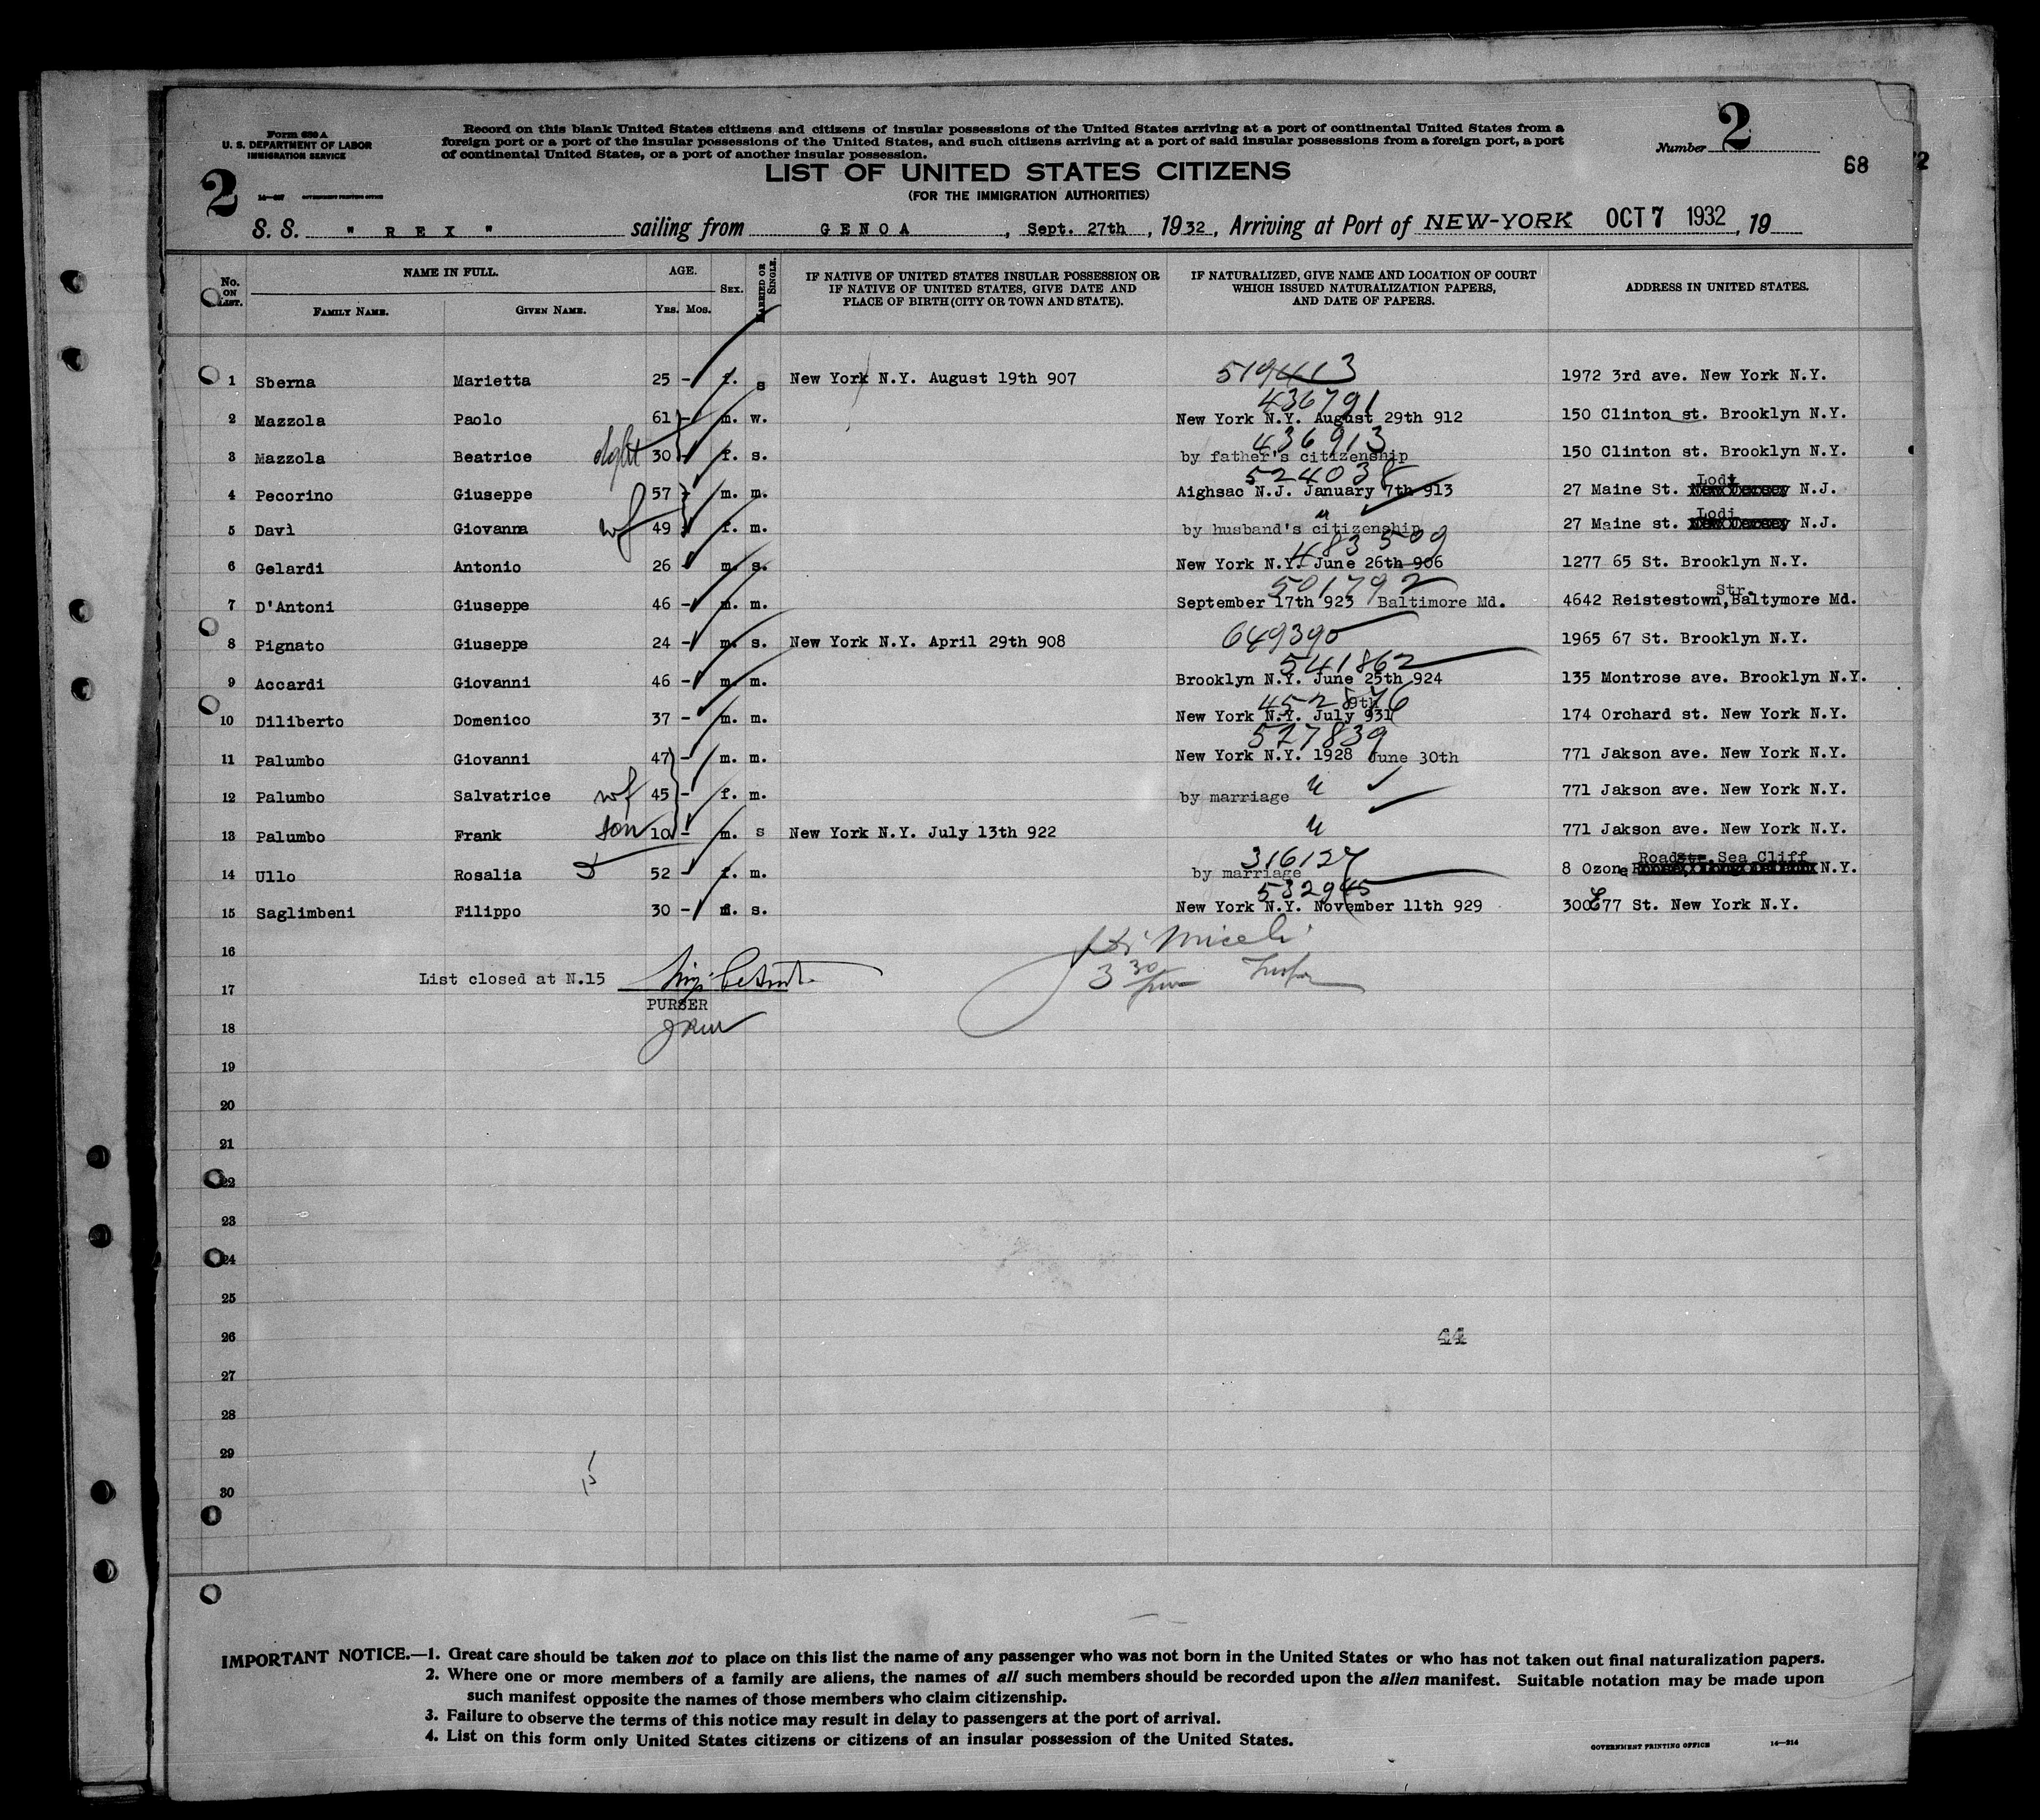 Form 630 A
U. S. DEPARTMENT OF LABOR
IMMIGRATION SERVICE
Record on this blank United States citizens and citizens of insular possessions of the United States arriving at a port of continental United States from a
foreign port or a port of the insular possessions of the United States, and such citizens arriving at a port of said insular possessions from a foreign port, a port
of continental United States, or a port of another insular possession.
Number 2
68
2
GOVERNMENT PRINTING OFFICE
LIST OF UNITED STATES CITIZENS
(FOR THE IMMIGRATION AUTHORITIES)
S. S. " R E X " sailing from G E N O A , Sept. 27th , 1932, Arriving at Port of NEW-YORK OCT 7 1932 , 19
No. ON LIST. NAME IN FULL. AGE. SEX. MARRIED OR SINGLE. IF NATIVE OF UNITED STATES INSULAR POSSESSION OR IF NATIVE OF UNITED STATES, GIVE DATE AND PLACE OF BIRTH (CITY OR TOWN AND STATE). IF NATURALIZED, GIVE NAME AND LOCATION OF COURT WHICH ISSUED NATURALIZATION PAPERS, AND DATE OF PAPERS. ADDRESS IN UNITED STATES.
FAMILY NAME. GIVEN NAME. YRS. MOS.
1 Sberna Marietta 25 - f. s New York N.Y. August 19th 907 519413 1972 3rd ave. New York N.Y.
436791
2 Mazzola Paolo 61 - m. w. New York N.Y. August 29th 912 150 Clinton st. Brooklyn N.Y.
436913
3 Mazzola Beatrice dght 30 - f. s. by father's citizenship 150 Clinton st. Brooklyn N.Y.
524038 Lodi
4 Pecorino Giuseppe 57 - m. m. Aighsac N.J. January 7th 913 27 Maine St. New Jersey N.J.
" Lodi
5 Davì Giovanna wf 49 - f. m. by husband's citizenship 27 Maine st. New Jersey N.J.
483509
6 Gelardi Antonio 26 - m. s. New York N.Y. June 26th 906 1277 65 St. Brooklyn N.Y.
501792 Str.
7 D'Antoni Giuseppe 46 - m. m. September 17th 923 Baltimore Md. 4642 Reistestown, Baltymore Md.
8 Pignato Giuseppe 24 - m. s. New York N.Y. April 29th 908 649390 1965 67 St. Brooklyn N.Y.
541862
9 Accardi Giovanni 46 - m. m. Brooklyn N.Y. June 25th 924 135 Montrose ave. Brooklyn N.Y.
452876 9th
10 Diliberto Domenico 37 - m. m. New York N.Y. July 931 174 Orchard st. New York N.Y.
527839
11 Palumbo Giovanni 47 - m. m. New York N.Y. 1928 June 30th 771 Jakson ave. New York N.Y.
12 Palumbo Salvatrice wf 45 - f. m. by marriage " 771 Jakson ave. New York N.Y.
13 Palumbo Frank son 10 - m. s New York N.Y. July 13th 922 " 771 Jakson ave. New York N.Y.
316127 Road Str. Sea Cliff
14 Ullo Rosalia 52 - f. m. by marriage 8 Ozone N.Y.
532945
15 Saglimbeni Filippo 30 - m. s. New York N.Y. November 11th 929 300 E 77 St. New York N.Y.
16
List closed at N.15
3 30
17
PURSER
18
19
20
21
22
23
24
25
26
44
27
28
29
30
15
IMPORTANT NOTICE.—1. Great care should be taken not to place on this list the name of any passenger who was not born in the United States or who has not taken out final naturalization papers.
2. Where one or more members of a family are aliens, the names of all such members should be recorded upon the alien manifest. Suitable notation may be made upon
such manifest opposite the names of those members who claim citizenship.
3. Failure to observe the terms of this notice may result in delay to passengers at the port of arrival.
4. List on this form only United States citizens or citizens of an insular possession of the United States.
GOVERNMENT PRINTING OFFICE 14—214